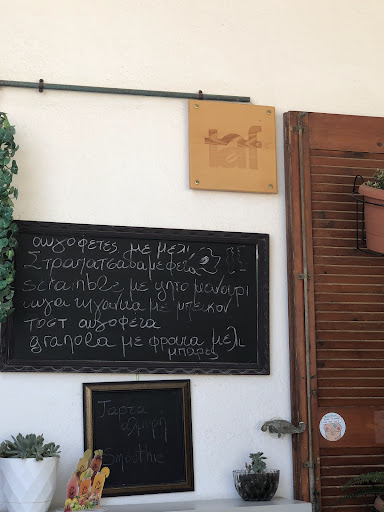 taf
αυγοφετες με μελι
Στραπατσαδα με φετα
scramble με ψητο μανιταρι
αυγα τηγανιτα με μπεικον
τοστ αυγοφετα
granola με φρουτα μελι
μπαρες
Ταρτα
αλμυρη
Smoothie